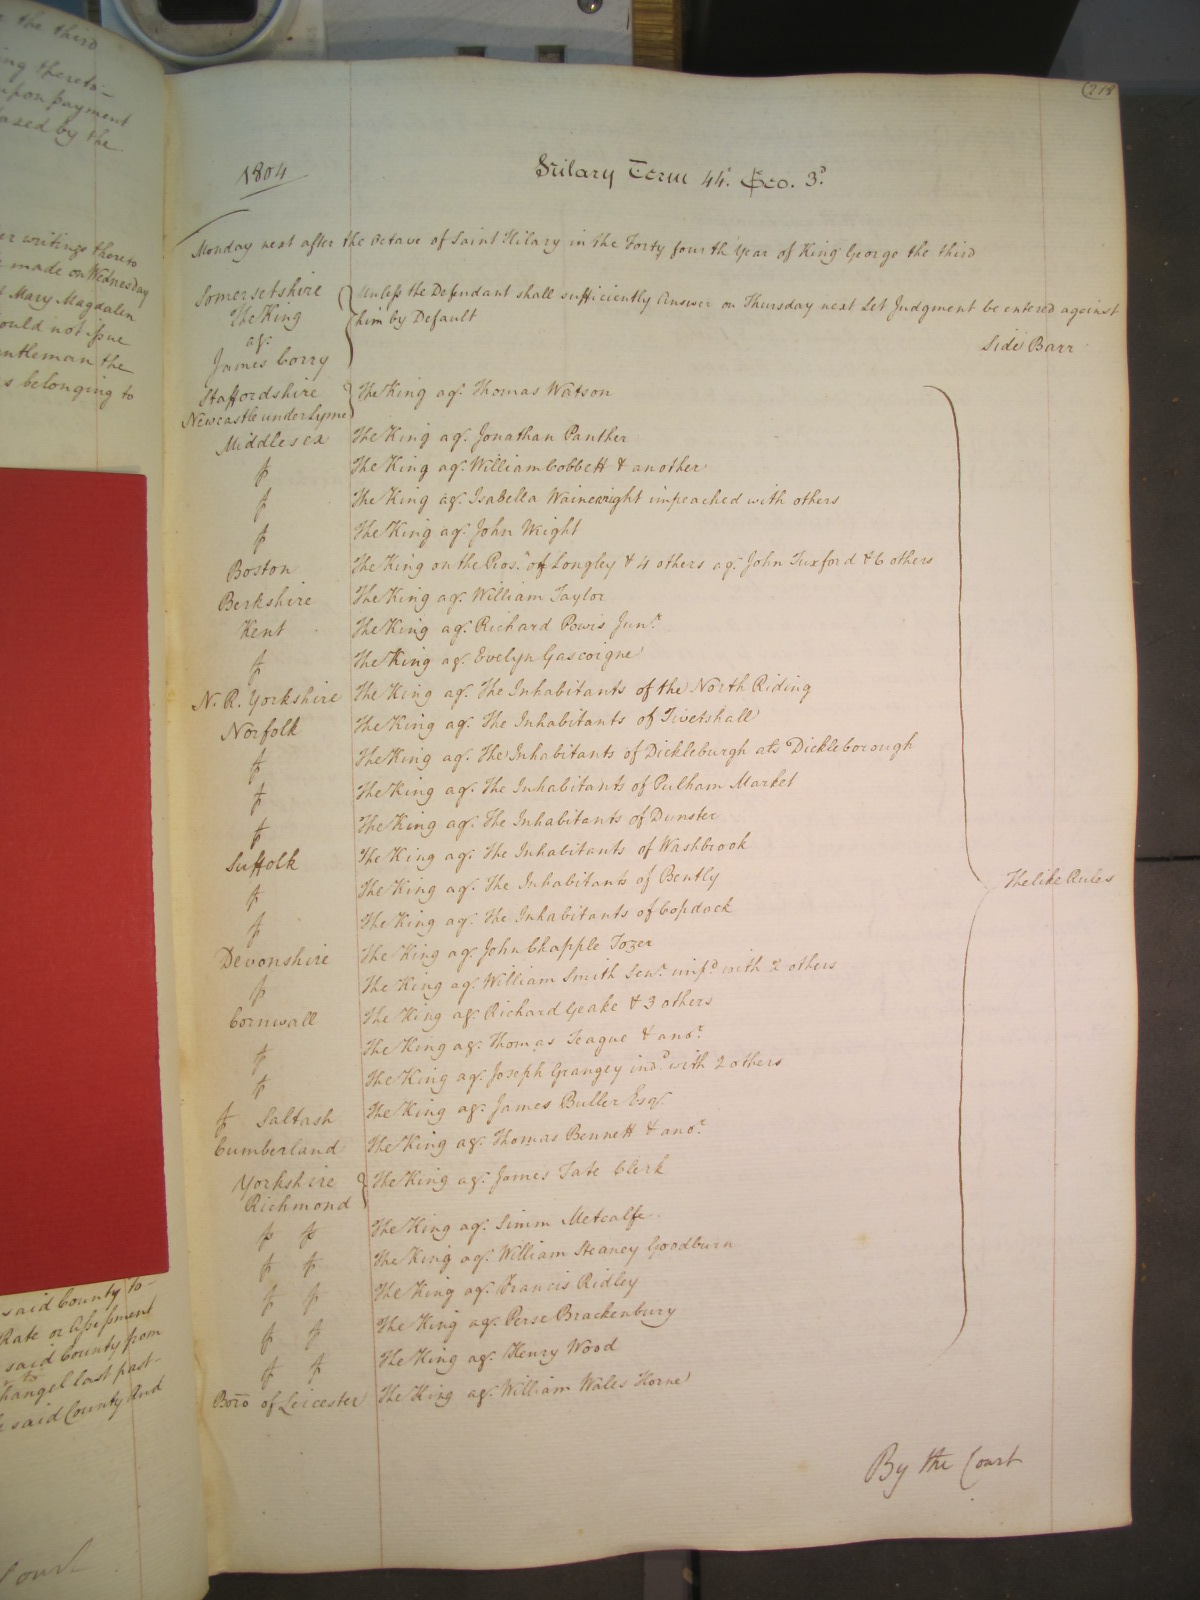 r the third
ing thereto
upon payment
ased by the
er writings thereto
made on Wednesday
Mary Magdalen
ould not issue
ntleman the
s belonging to
said County to
Rate or Assessment
said County from
to
hangel last past
said County And
Court
(218
1804
Hilary Term 44th. Geo. 3d.
Monday next after the Octave of Saint Hilary in the Forty fourth Year of King George the third
Somersetshire
The King
agt.
James Corry
Unless the Defendant shall sufficiently Answer on Thursday next Let Judgment be entered against
him by Default
Side Barr
Staffordshire The King agt. Thomas Watson
Newcastle under Lyme
Middlesex The King agt. Jonathan Panther
f The King agt. William Cobbett & another
f The King agt. Isabella Wainewright impeached with others
f The King agt. John Wright
Boston The King on the Pros.n of Longley & 4 others agt. John Tuxford & 6 others
Berkshire The King agt. William Taylor
Kent The King agt. Richard Powis Junr.
f The King agt. Evelyn Gascoigne
N. R. Yorkshire The King agt. The Inhabitants of the North Riding
Norfolk The King agt. The Inhabitants of Tivetshall
f The King agt. The Inhabitants of Dickleburgh als Dickleborough
f The King agt. The Inhabitants of Pulham Market
f The King agt. The Inhabitants of Dunster
Suffolk The King agt. The Inhabitants of Washbrook
f The King agt. The Inhabitants of Bently
f The King agt. The Inhabitants of Copdock
Devonshire The King agt. John Chapple Tozer
f The King agt. William Smith Senr. impd. with 2 others
Cornwall The King agt. Richard Geake & 3 others
f The King agt. Thomas Teague & anor.
f The King agt. Joseph Grangey ind.d with 2 others
f Saltash The King agt. James Buller Esqr.
Cumberland The King agt. Thomas Bennett & anor.
Yorkshire The King agt. James Tate Clerk
Richmond
f f The King agt. Simm Metcalfe
f f The King agt. William Steaney Goodburn
f f The King agt. Francis Ridley
f f The King agt. Perse Brackenbury
f f The King agt. Henry Wood
Boro of Leicester The King agt. William Wales Horne
The like Rules
By the Court